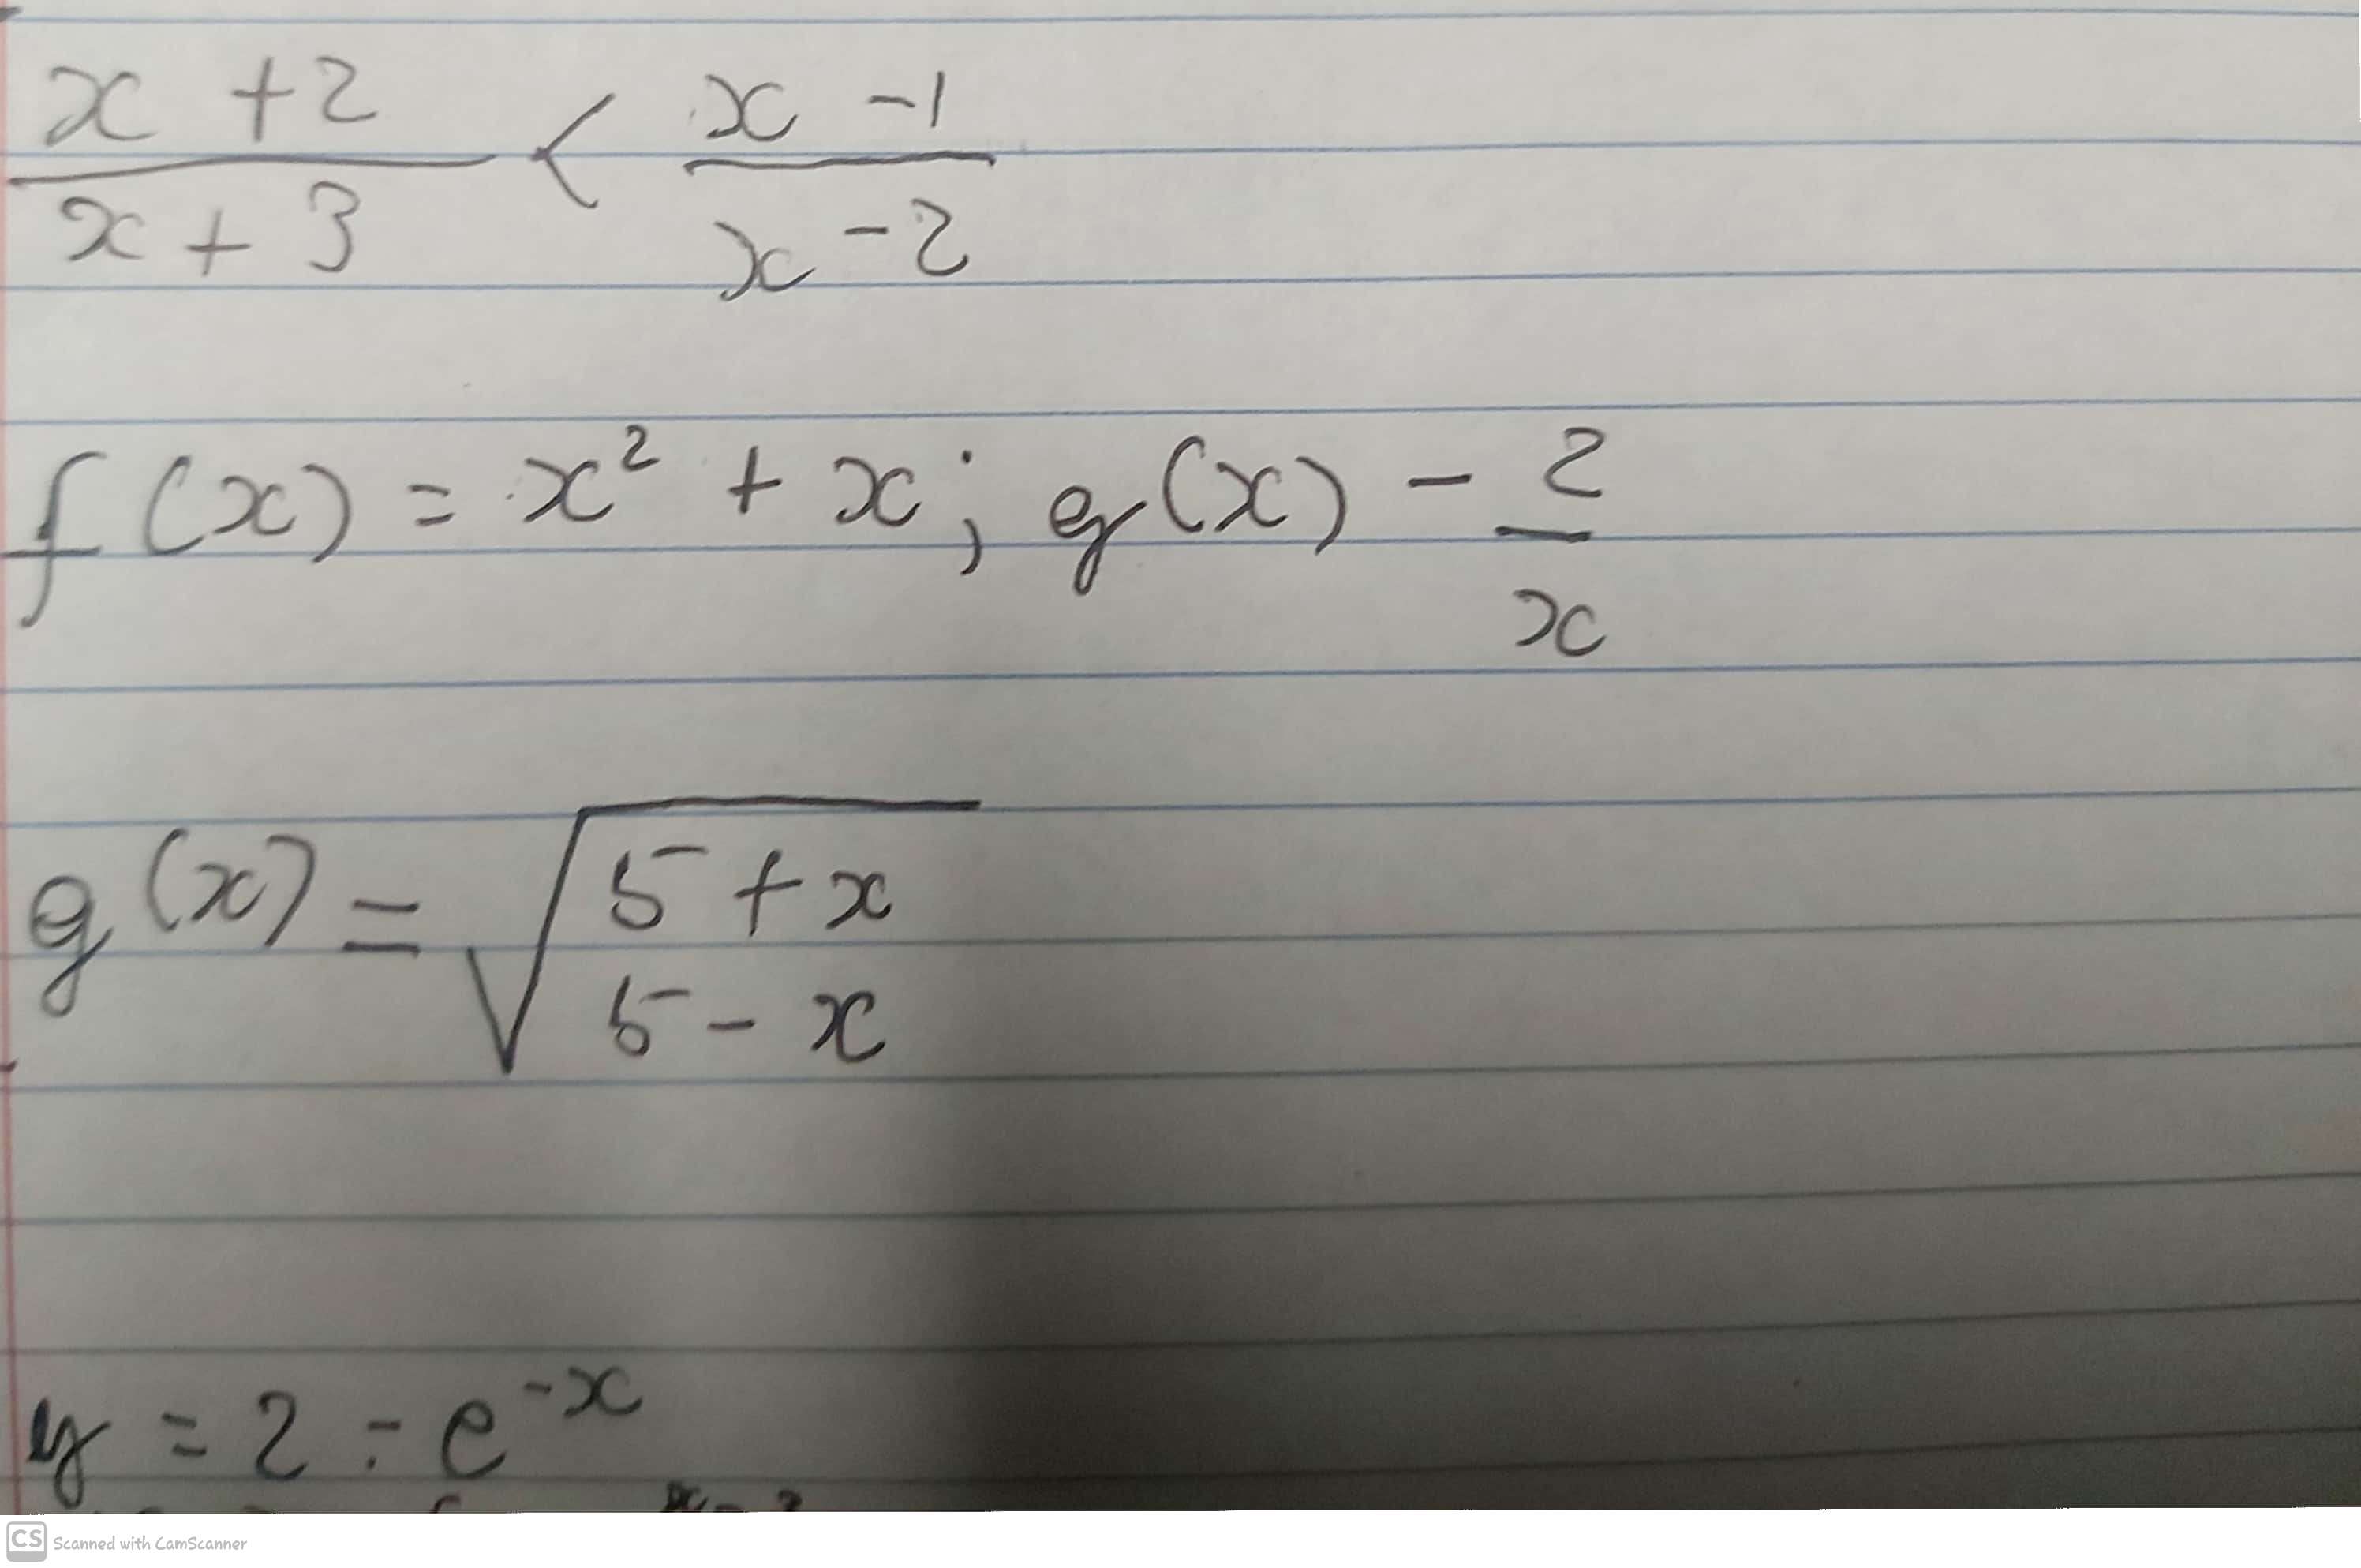 x + 2 / x + 3 < x - 1 / x - 2
f(x) = x² + x; g(x) - 2/x
g(x) = √(5 + x / 5 - x)
y = 2 - e^-x
CS Scanned with CamScanner